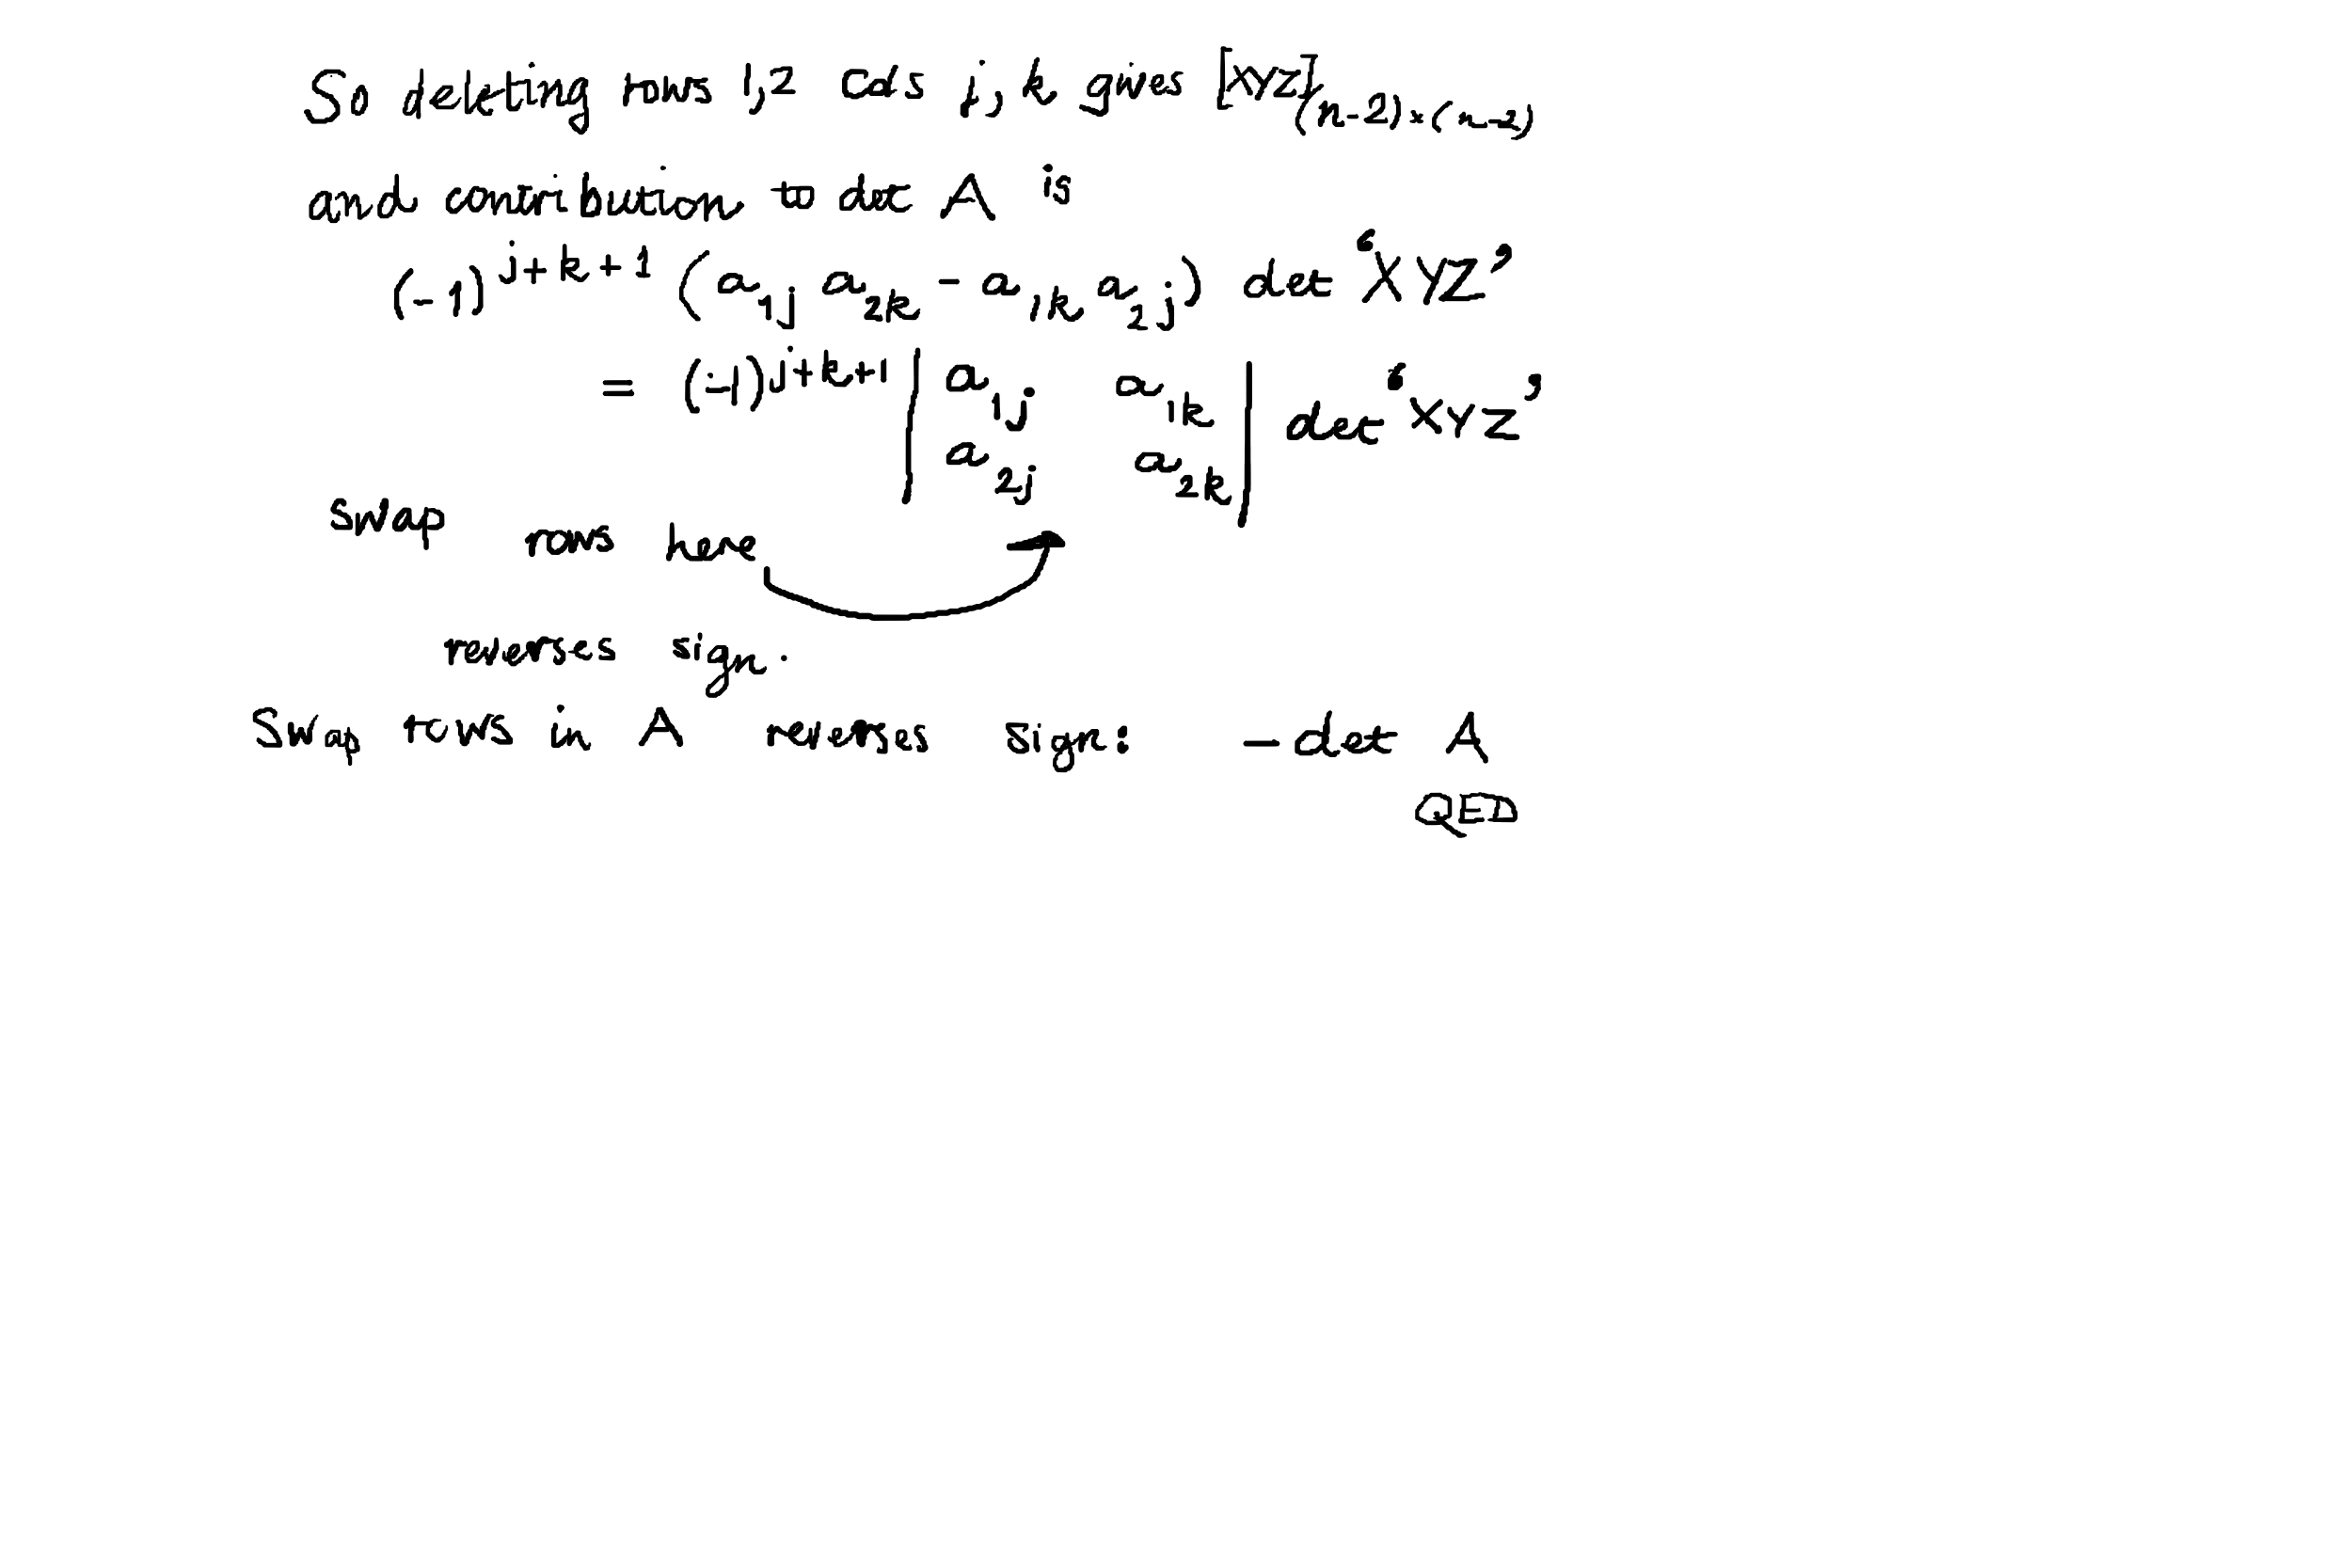 So deleting rows 1,2 cols j, k gives [XYZ](n-2)×(n-2)
and contribution to det A is
(-1)^{j+k+1} (a_{1j} a_{2k} - a_{1k} a_{2j}) det ‘XYZ’
= (-1)^{j+k+1} | a_{1j} a_{1k} | det ‘XYZ’
a_{2j} a_{2k}
swap rows here
reverses sign.
Swap rows in A reverses sign: - det A
QED